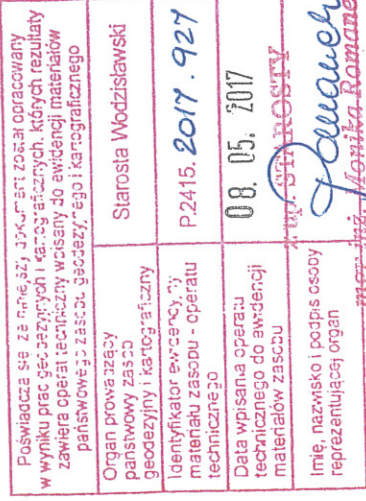 Poświadcza się, że niniejszy dokument został opracowany
w wyniku prac geodezyjnych i kartograficznych, których rezultaty
zawiera operat techniczny wpisany do ewidencji materiałów
państwowego zasobu geodezyjnego i kartograficznego
Organ prowadzący
państwowy zasób
geodezyjny i kartograficzny
Starosta Wodzisławski
Identyfikator ewidencyjny
materiału zasobu - operatu
technicznego
P2415.2017.927
Data wpisania operatu
technicznego do ewidencji
materiałów zasobu
08. 05. 2017
Imię, nazwisko i podpis osoby
reprezentującej organ
z up. STAROSTY
mgr inż. Monika